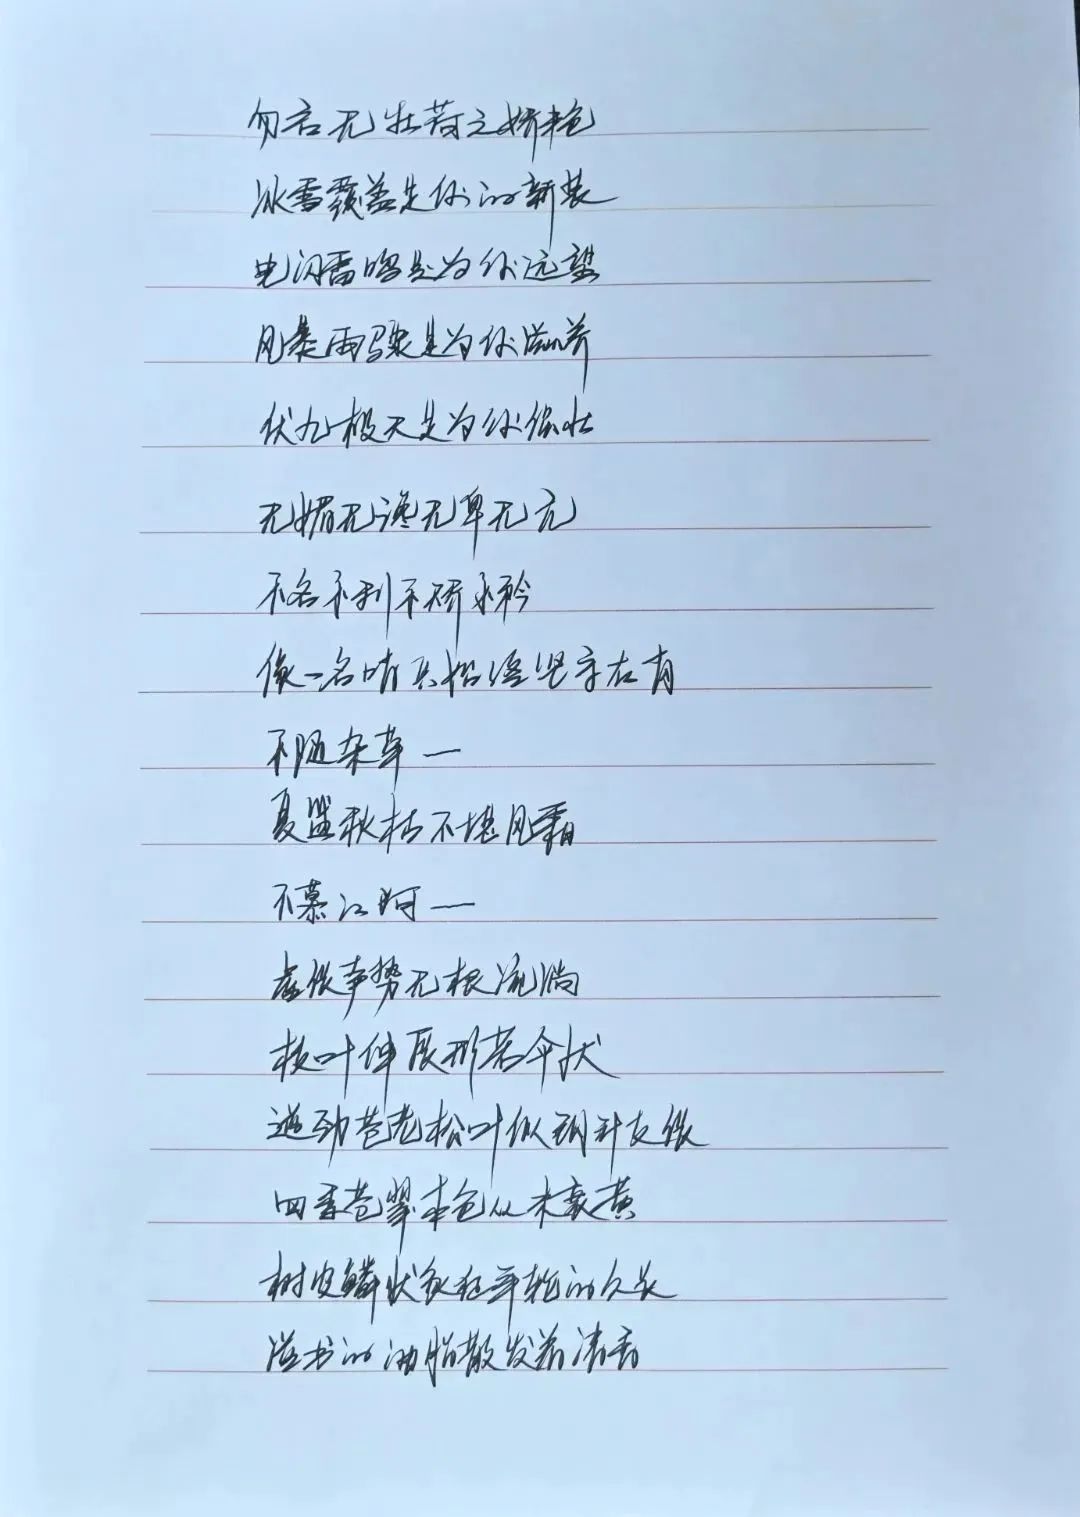 勿言无牡荷之娇艳
冰雪覆盖是你的新装
电闪雷鸣是为你远望
风暴雨骤是为你滋养
伏九极天是为你强壮
无媚无谗无卑无亢
不名不利不骄不矜
像一名哨兵始终坚守在肩
不随杂草一
夏盛秋枯不堪风霜
不慕江河一
虚张声势无根流淌
枝叶伸展形若伞状
遒劲苍老松叶似钢针支张
四季苍翠本色从未衰黄
树皮鳞状象征年轮的久长
溢出的油脂散发着清香